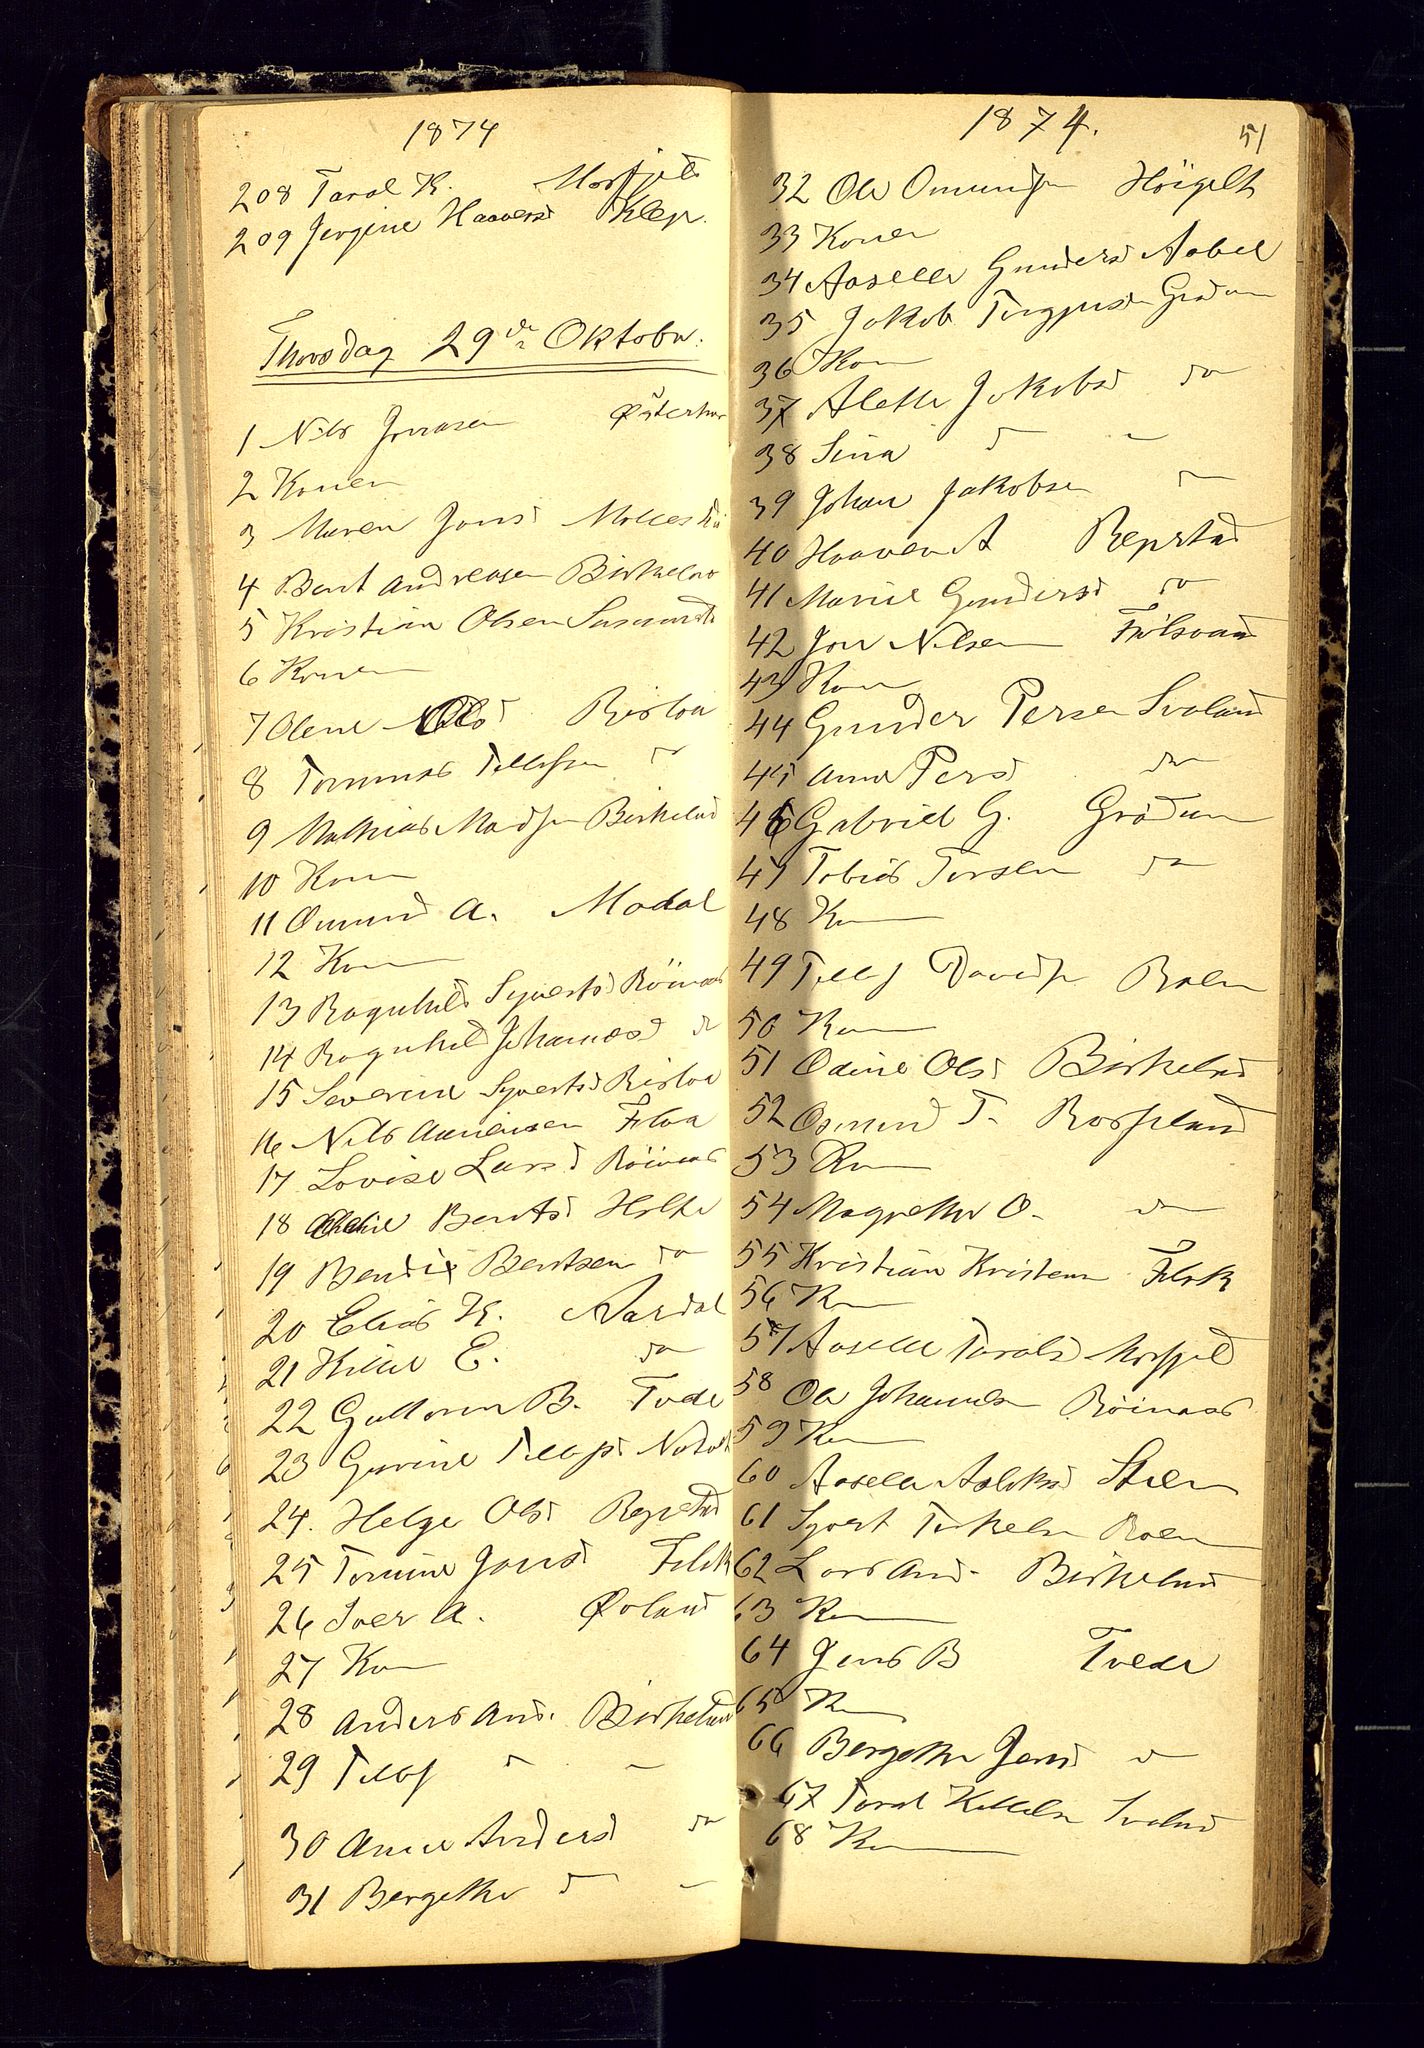 1874
208 Taral K. Mosfjeld
209 Jergine Haavers Klep.
Thorsdag 29de Oktober.
1 Nils Jonasen Østerhus
2 Konen
3 Maren Jons
4 Bent Andreasen Birkeland
5 Kristian Olsen
6 Konen
7 Olene Risloa
8 Tommas Tellefsen do
9 Mathias Madsen Birkeland
10 Kone
11 Omund A. Modal
12 Kone
13 Ragnhild Syverts Röinaas
14 Ragnhild Johannes do
15 Severine Syverts Risloa
16 Nils
17 Lovise Lars Röinaas
18 Bents Holte
19 Bendix Bentsen do
20 Elias K. Aardal
21 Kittel E. do
22 Guttorm B. Tvede
23 Gurine Tellefs
24. Helge Ols Repstad
25 Tomine Jons Filsk
26 Iver A. Øvland
27 Kone
28 Anders And. Birkeland
29 Tellef " "
30 Anne Anders do
31 Bergethe " "
1874. 51
32 Ole Omundsen Höigelt
33 Konen
34 Aaselle Gunders Aabel
35 Jakob Torgjusen Grödum
36 Kone
37 Alette Jakobs do
38 Sina " "
39 Johan Jakobsen "
40 Haaven A Repstad
41 Marie Gunders do
42 Jon Nilsen
43 Kone
44 Gunder Persen Svaland
45 Anne Pers do
46 Gabriel G. Grödum
47 Tobias Torsen do
48 Kone
49 Tellef Davidsen Roen
50 Kone
51 Odine Ols Birkeland
52 Osmund T. Rosseland
53 Kone
54 Magrethe O. do
55 Kristian Kristensen Filsk
56 Kone
57 Aaselle Tarals Mosfjeld
58 Ole Johannesen Röinaas
59 Kone
60 Aaselle Aslaks Stien
61 Syvert Terkelsen Roen
62 Lars And. Birkeland
63 Kone
64 Jens B Tvede
65 Kone
66 Bergethe Jens do
67 Taral Kittelsen Svaland
68 Kone